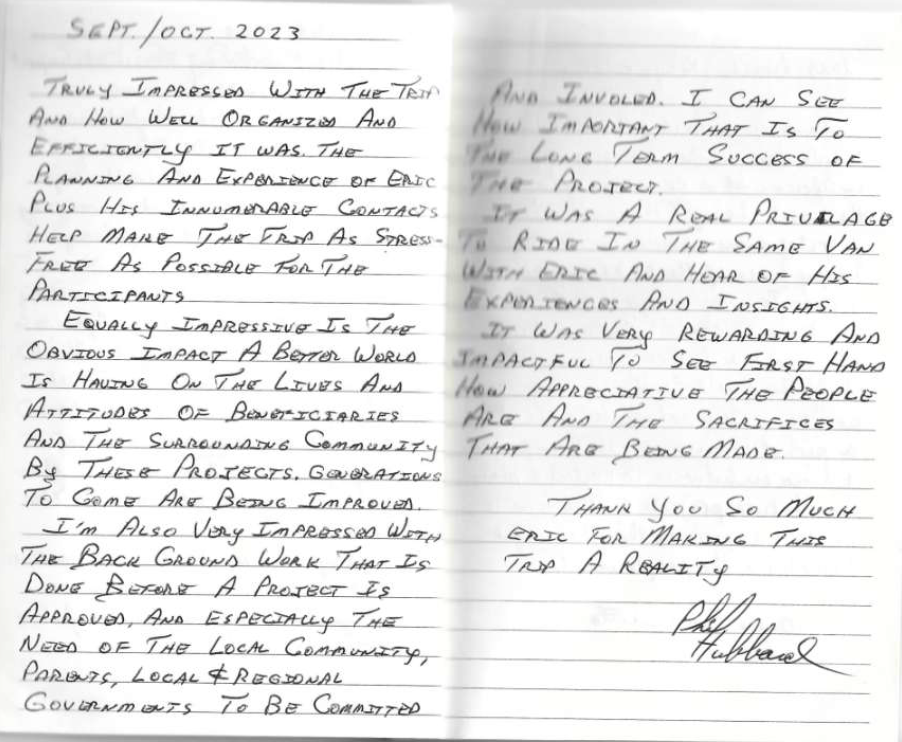 SEPT./OCT. 2023
TRULY IMPRESSED WITH THE TRIP
AND HOW WELL ORGANIZED AND
EFFICIENTLY IT WAS. THE
PLANNING AND EXPERIENCE OF ERIC
PLUS HIS INNUMERABLE CONTACTS
HELP MAKE THE TRIP AS STRESS-
FREE AS POSSIBLE FOR THE
PARTICIPANTS
EQUALLY IMPRESSIVE IS THE
OBVIOUS IMPACT A BETTER WORLD
IS HAVING ON THE LIVES AND
ATTITUDES OF BENEFICIARIES
AND THE SURROUNDING COMMUNITY
BY THESE PROJECTS. GENERATIONS
TO COME ARE BEING IMPROVED.
I'M ALSO VERY IMPRESSED WITH
THE BACK GROUND WORK THAT IS
DONE BEFORE A PROJECT IS
APPROVED, AND ESPECIALLY THE
NEED OF THE LOCAL COMMUNITY,
PARENTS, LOCAL & REGIONAL
GOVERNMENTS TO BE COMMITTED
AND INVOLED. I CAN SEE
HOW IMPORTANT THAT IS TO
THE LONG TERM SUCCESS OF
THE PROJECT.
IT WAS A REAL PRIVILAGE
TO RIDE IN THE SAME VAN
WITH ERIC AND HEAR OF HIS
EXPERIENCES AND INSIGHTS.
IT WAS VERY REWARDING AND
IMPACTFUL TO SEE FIRST HAND
HOW APPRECIATIVE THE PEOPLE
ARE AND THE SACRIFICES
THAT ARE BEING MADE.
THANK YOU SO MUCH
ERIC FOR MAKING THIS
TRIP A REALITY
Phil
Hubbard